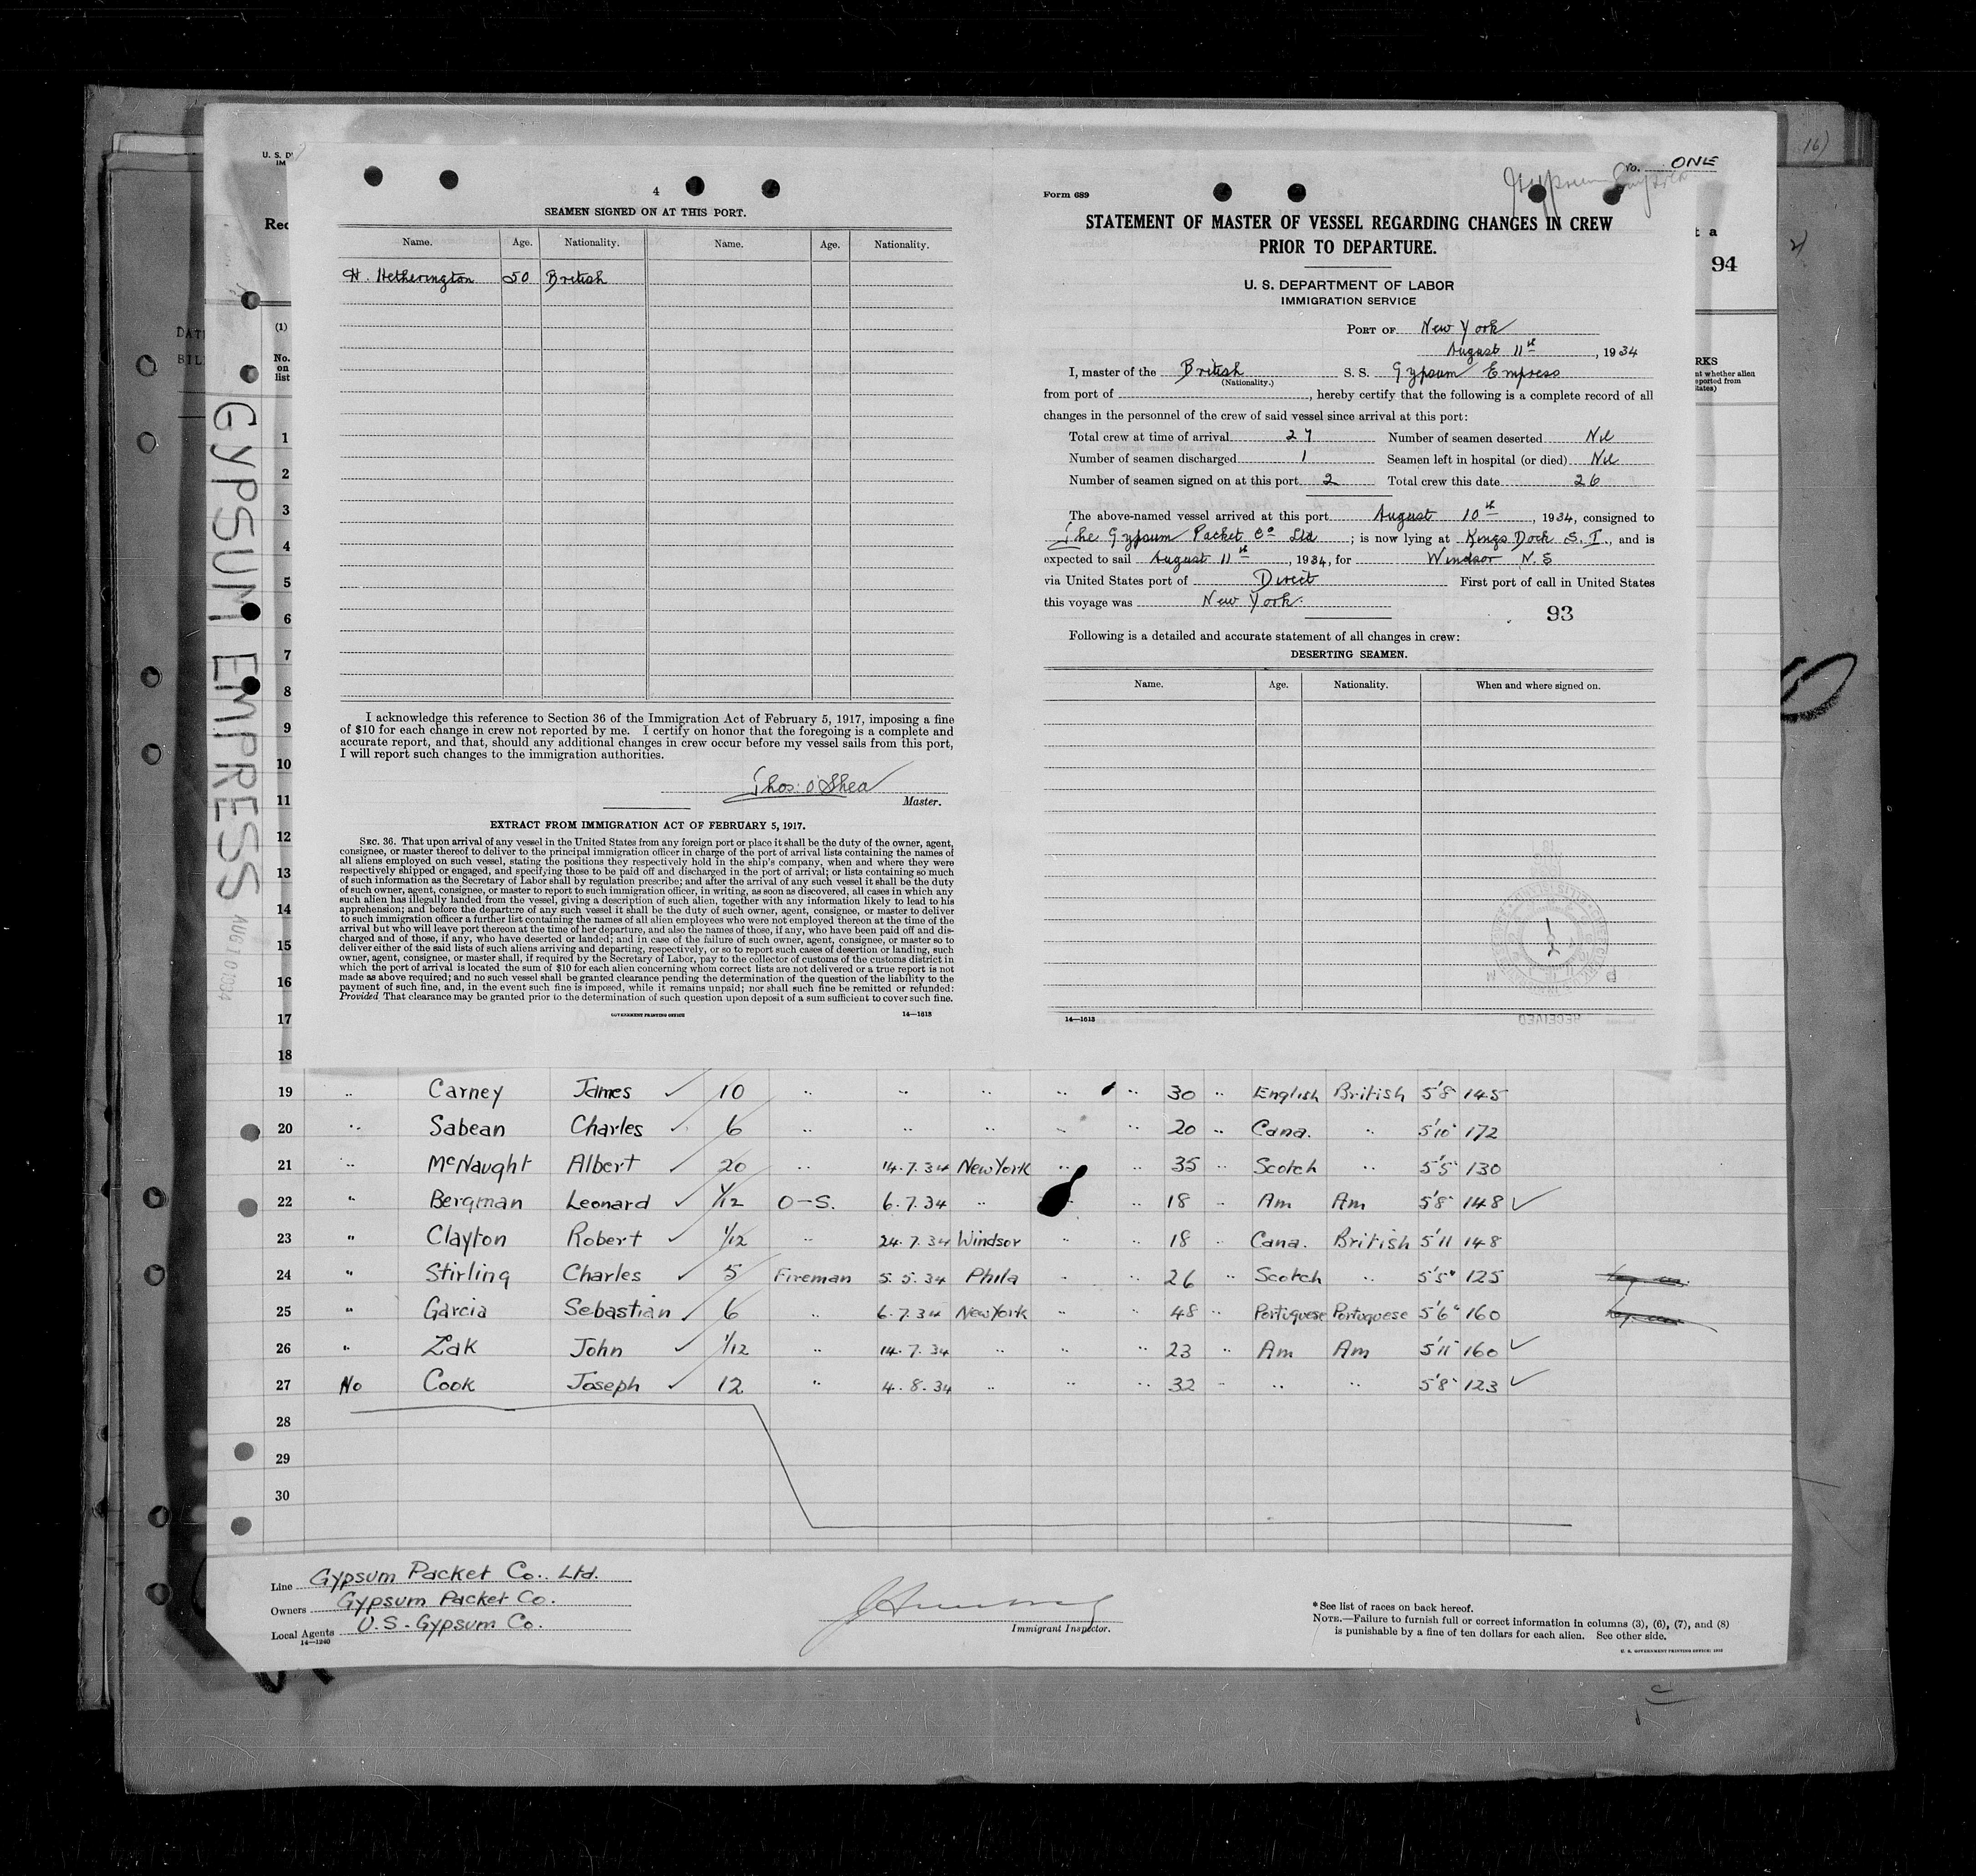 4
SEAMEN SIGNED ON AT THIS PORT.
Name. Age. Nationality. Name. Age. Nationality.
H. Hetherington 50 British
I acknowledge this reference to Section 36 of the Immigration Act of February 5, 1917, imposing a fine
of $10 for each change in crew not reported by me. I certify on honor that the foregoing is a complete and
accurate report, and that, should any additional changes in crew occur before my vessel sails from this port,
I will report such changes to the immigration authorities.
Thos: O'Shea
Master.
EXTRACT FROM IMMIGRATION ACT OF FEBRUARY 5, 1917.
SEC. 36. That upon arrival of any vessel in the United States from any foreign port or place it shall be the duty of the owner, agent,
consignee, or master thereof to deliver to the principal immigration officer in charge of the port of arrival lists containing the names of
all aliens employed on such vessel, stating the positions they respectively hold in the ship's company, when and where they were
respectively shipped or engaged, and specifying those to be paid off and discharged in the port of arrival; or lists containing so much
of such information as the Secretary of Labor shall by regulation prescribe; and after the arrival of any such vessel it shall be the duty
of such owner, agent, consignee, or master to report to such immigration officer, in writing, as soon as discovered, all cases in which any
such alien has illegally landed from the vessel, giving a description of such alien, together with any information likely to lead to his
apprehension; and before the departure of any such vessel it shall be the duty of such owner, agent, consignee, or master to deliver
to such immigration officer a further list containing the names of all alien employees who were not employed thereon at the time of the
arrival but who will leave port thereon at the time of her departure, and also the names of those, if any, who have been paid off and dis-
charged and of those, if any, who have deserted or landed; and in case of the failure of such owner, agent, consignee, or master so to
deliver either of the said lists of such aliens arriving and departing, respectively, or so to report such cases of desertion or landing, such
owner, agent, consignee, or master shall, if required by the Secretary of Labor, pay to the collector of customs of the customs district in
which the port of arrival is located the sum of $10 for each alien concerning whom correct lists are not delivered or a true report is not
made as above required; and no such vessel shall be granted clearance pending the determination of the question of the liability to the
payment of such fine, and, in the event such fine is imposed, while it remains unpaid; nor shall such fine be remitted or refunded:
Provided That clearance may be granted prior to the determination of such question upon deposit of a sum sufficient to cover such fine.
GOVERNMENT PRINTING OFFICE 14—1613
Form 689
No. ONE
STATEMENT OF MASTER OF VESSEL REGARDING CHANGES IN CREW
PRIOR TO DEPARTURE.
U. S. DEPARTMENT OF LABOR
IMMIGRATION SERVICE
PORT OF New York
August 11th, 1934
I, master of the British S. S. Gypsum Empress
(Nationality.)
from port of , hereby certify that the following is a complete record of all
changes in the personnel of the crew of said vessel since arrival at this port:
Total crew at time of arrival 27 Number of seamen deserted Nil
Number of seamen discharged 1 Seamen left in hospital (or died) Nil
Number of seamen signed on at this port 2 Total crew this date 26
The above-named vessel arrived at this port August 10th, 1934, consigned to
The Gypsum Packet Co Ltd ; is now lying at Kings Dock S. I., and is
expected to sail August 11th, 1934, for Windsor N. S
via United States port of Direct First port of call in United States
this voyage was New York.
93
Following is a detailed and accurate statement of all changes in crew:
DESERTING SEAMEN.
Name. Age. Nationality. When and where signed on.
14—1613
94
GYPSUM EMPRESS
AUG 10 1934
(1)
No.
on
list
1
2
3
4
5
6
7
8
9
10
11
12
13
14
15
16
17
18
19 " Carney James ✓ 10 " " " " " 30 " English British 5'8 145
20 " Sabean Charles ✓ 6 " " " " " 20 " Cana. " 5'10" 172
21 " McNaught Albert ✓ 20 " 14.7.34 New York " " 35 " Scotch " 5'5" 130
22 " Bergman Leonard ✓ 1/12 O-S. 6.7.34 " " " 18 " Am Am 5'8" 148 ✓
23 " Clayton Robert ✓ 1/12 " 24.7.34 Windsor " " 18 " Cana. British 5'11 148
24 " Stirling Charles ✓ 5 Fireman 5.5.34 Phila " " 26 " Scotch " 5'5" 125
25 " Garcia Sebastian ✓ 6 " 6.7.34 New York " " 48 " Portuguese Portuguese 5'6" 160
26 " Zak John ✓ 1/12 " 14.7.34 " " " 23 " Am Am 5'11" 160 ✓
27 No Cook Joseph ✓ 12 " 4.8.34 " " " 32 " " " 5'8" 123 ✓
28
29
30
Line Gypsum Packet Co. Ltd.
Owners Gypsum Packet Co.
Local Agents U.S. Gypsum Co.
14—1240
Immigrant Inspector.
*See list of races on back hereof.
NOTE.—Failure to furnish full or correct information in columns (3), (6), (7), and (8)
is punishable by a fine of ten dollars for each alien. See other side.
U. S. GOVERNMENT PRINTING OFFICE: 1932